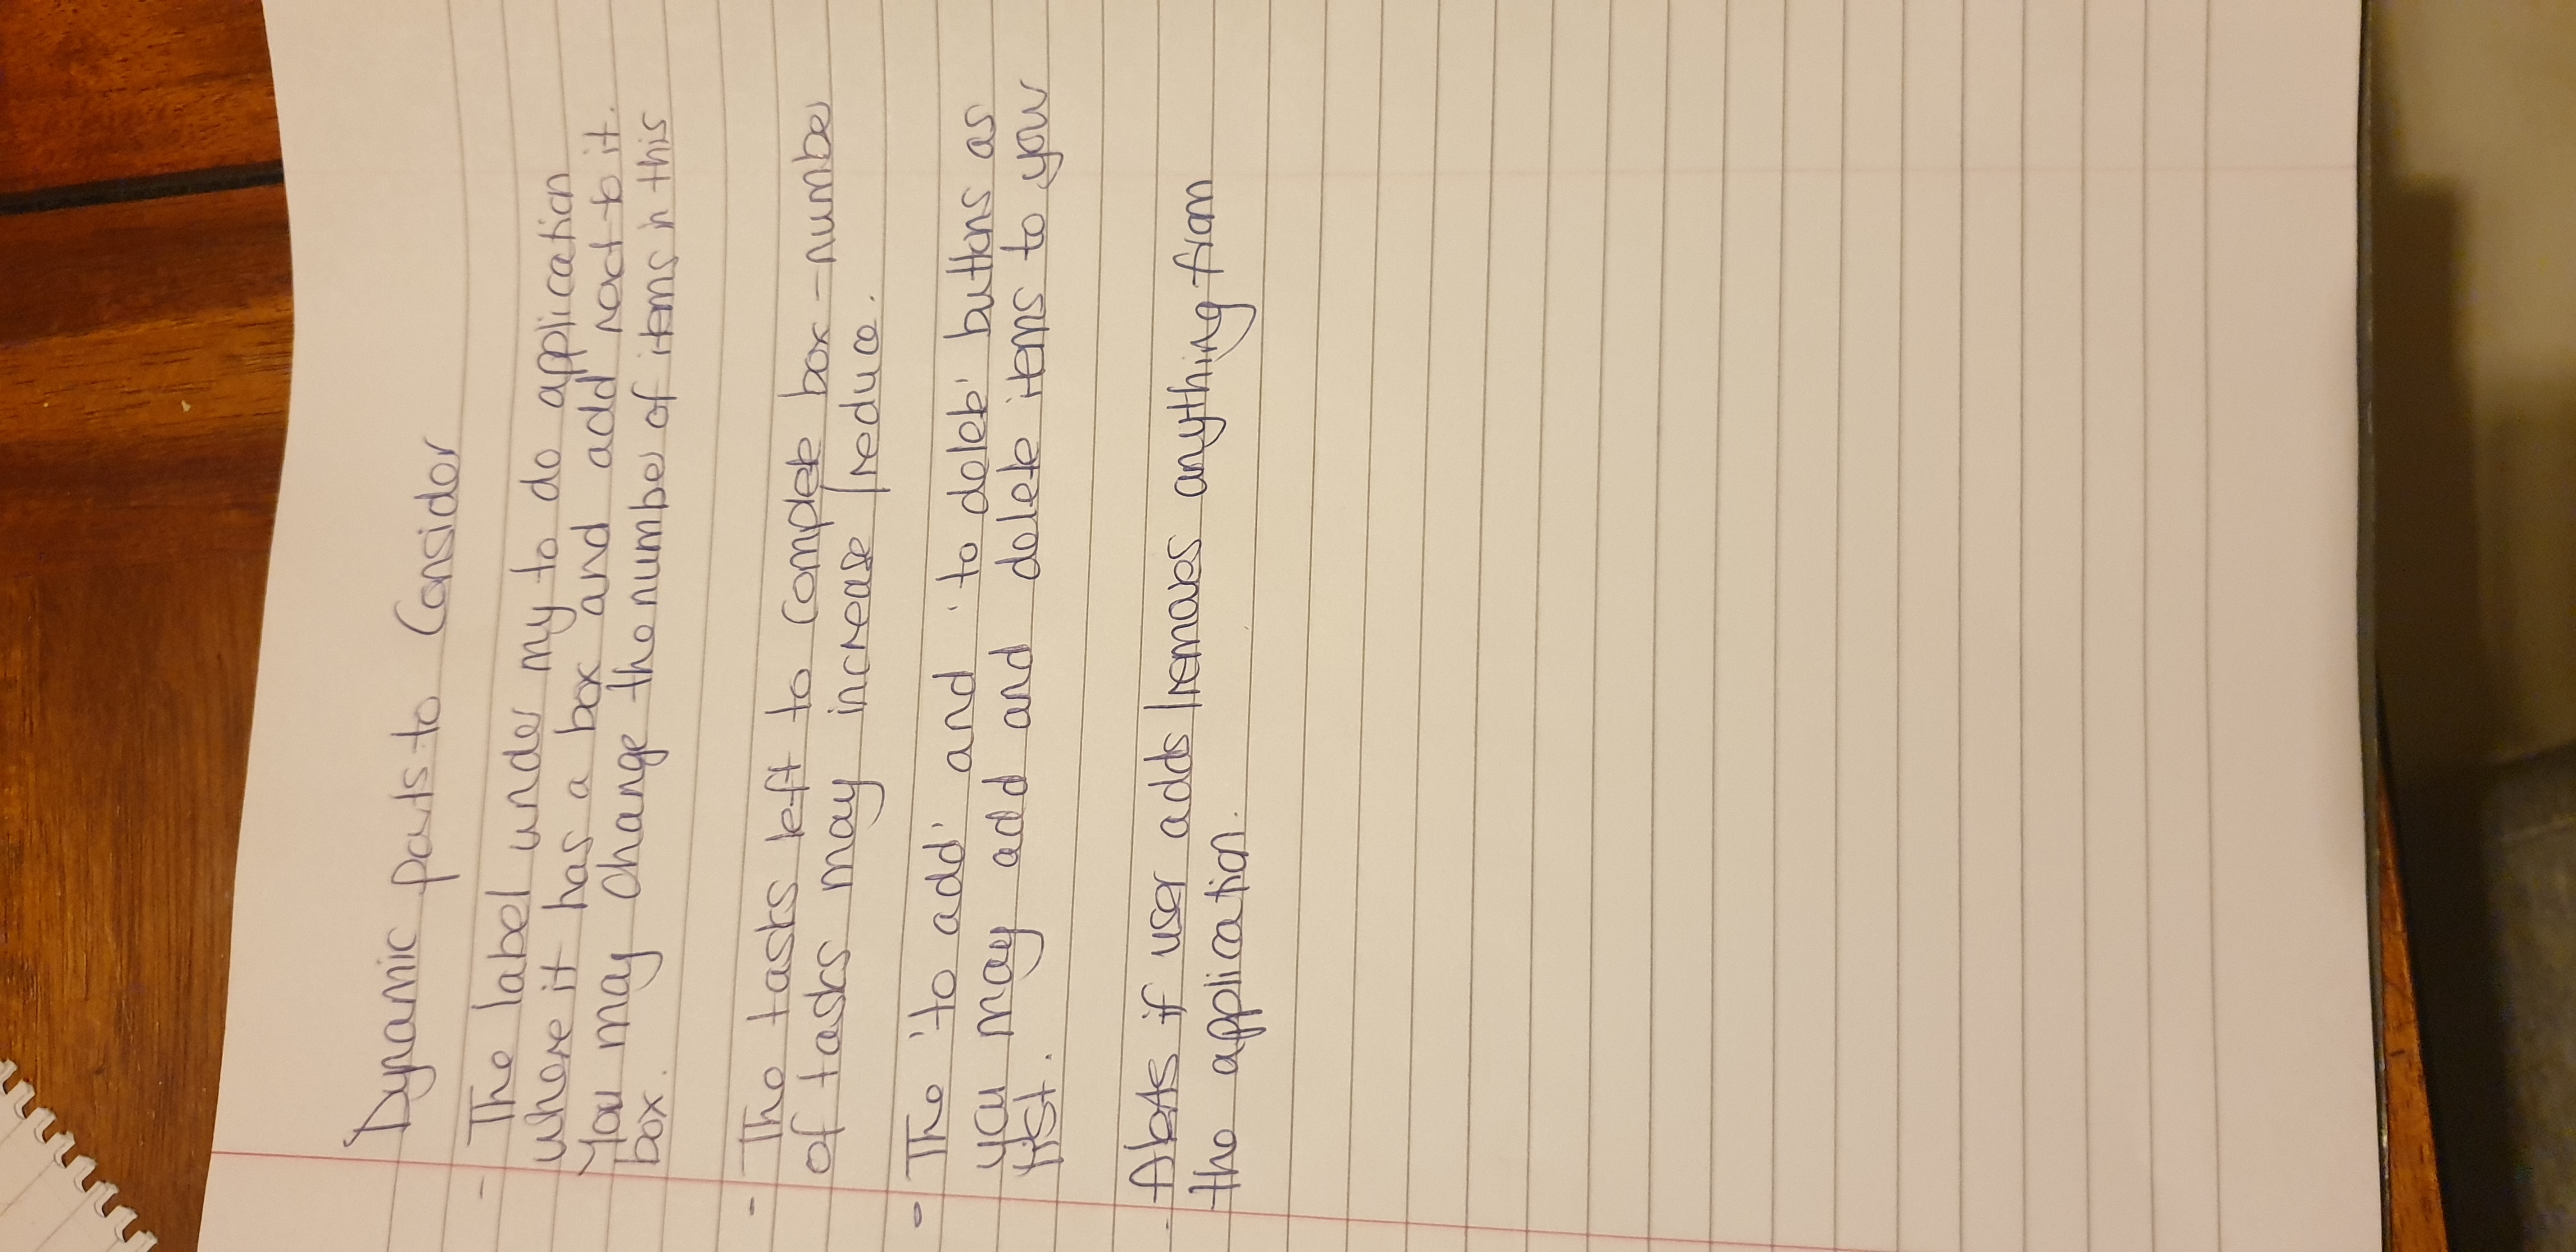 Dynamic parts to Consider
- The label under my to do application
where it has a box and add next to it.
You may change the number of items in this
box.
- The tasks left to complete box - number
of tasks may increase /reduce.
- The 'to add' and 'to delete' buttons as
you may add and delete items to your
list.
- Alerts if user adds /removes anything from
the application.